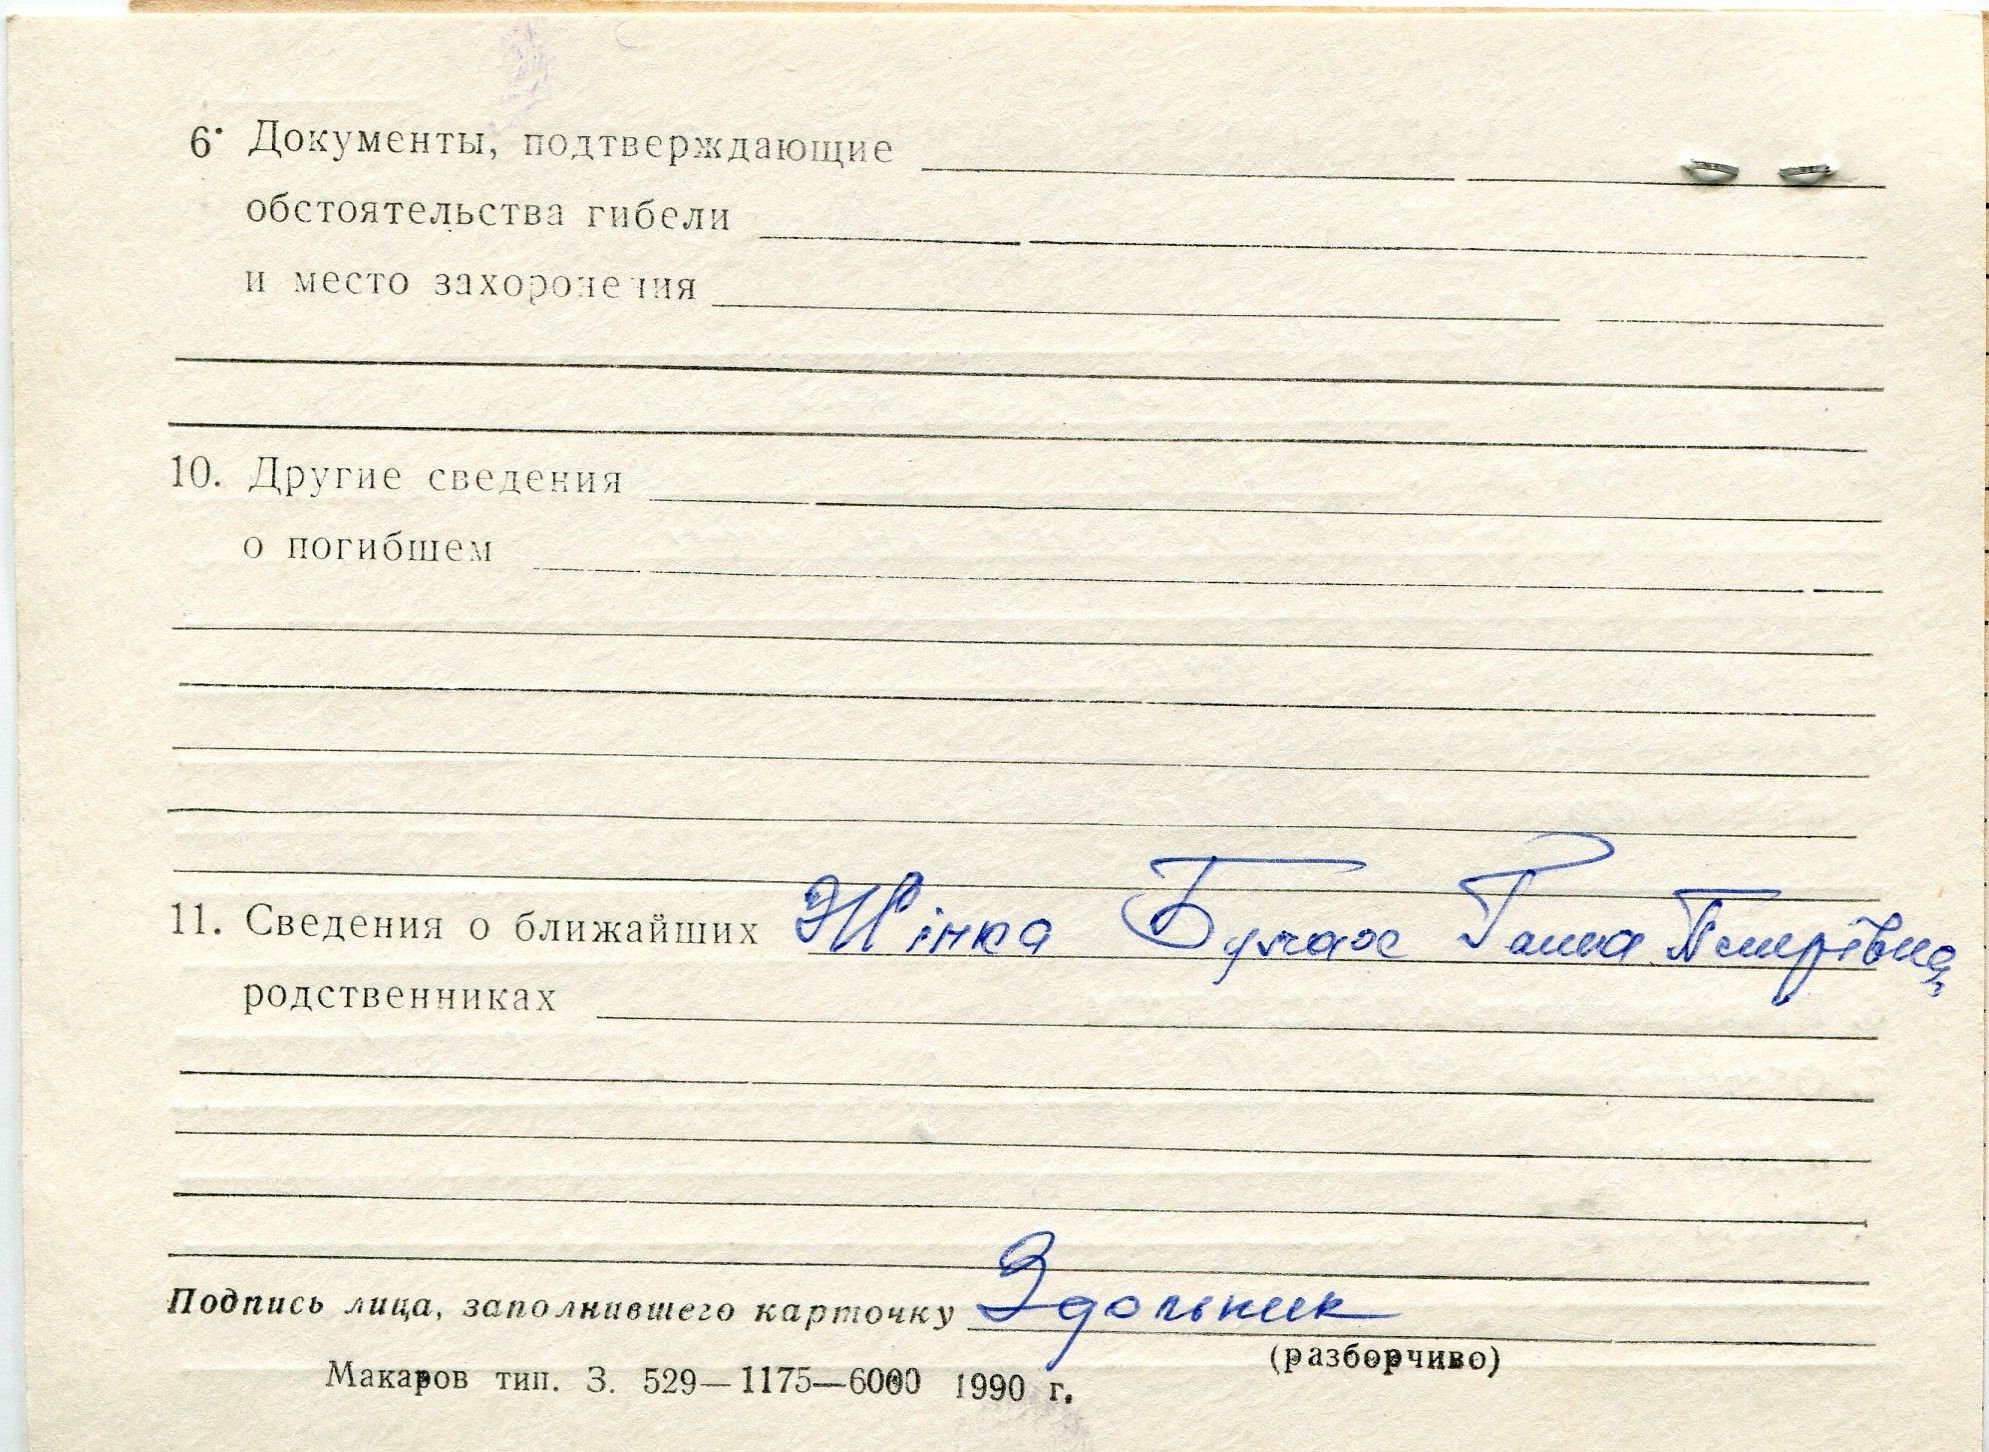 6. Документы, подтверждающие
обстоятельства гибели
и место захоронения
10. Другие сведения
о погибшем
11. Сведения о ближайших Жінка Ганна Петрівна
родственниках
Подпись лица, заполнившего карточку Здольник
(разборчиво)
Макаров тип. З. 529—1175—6000 1990 г.